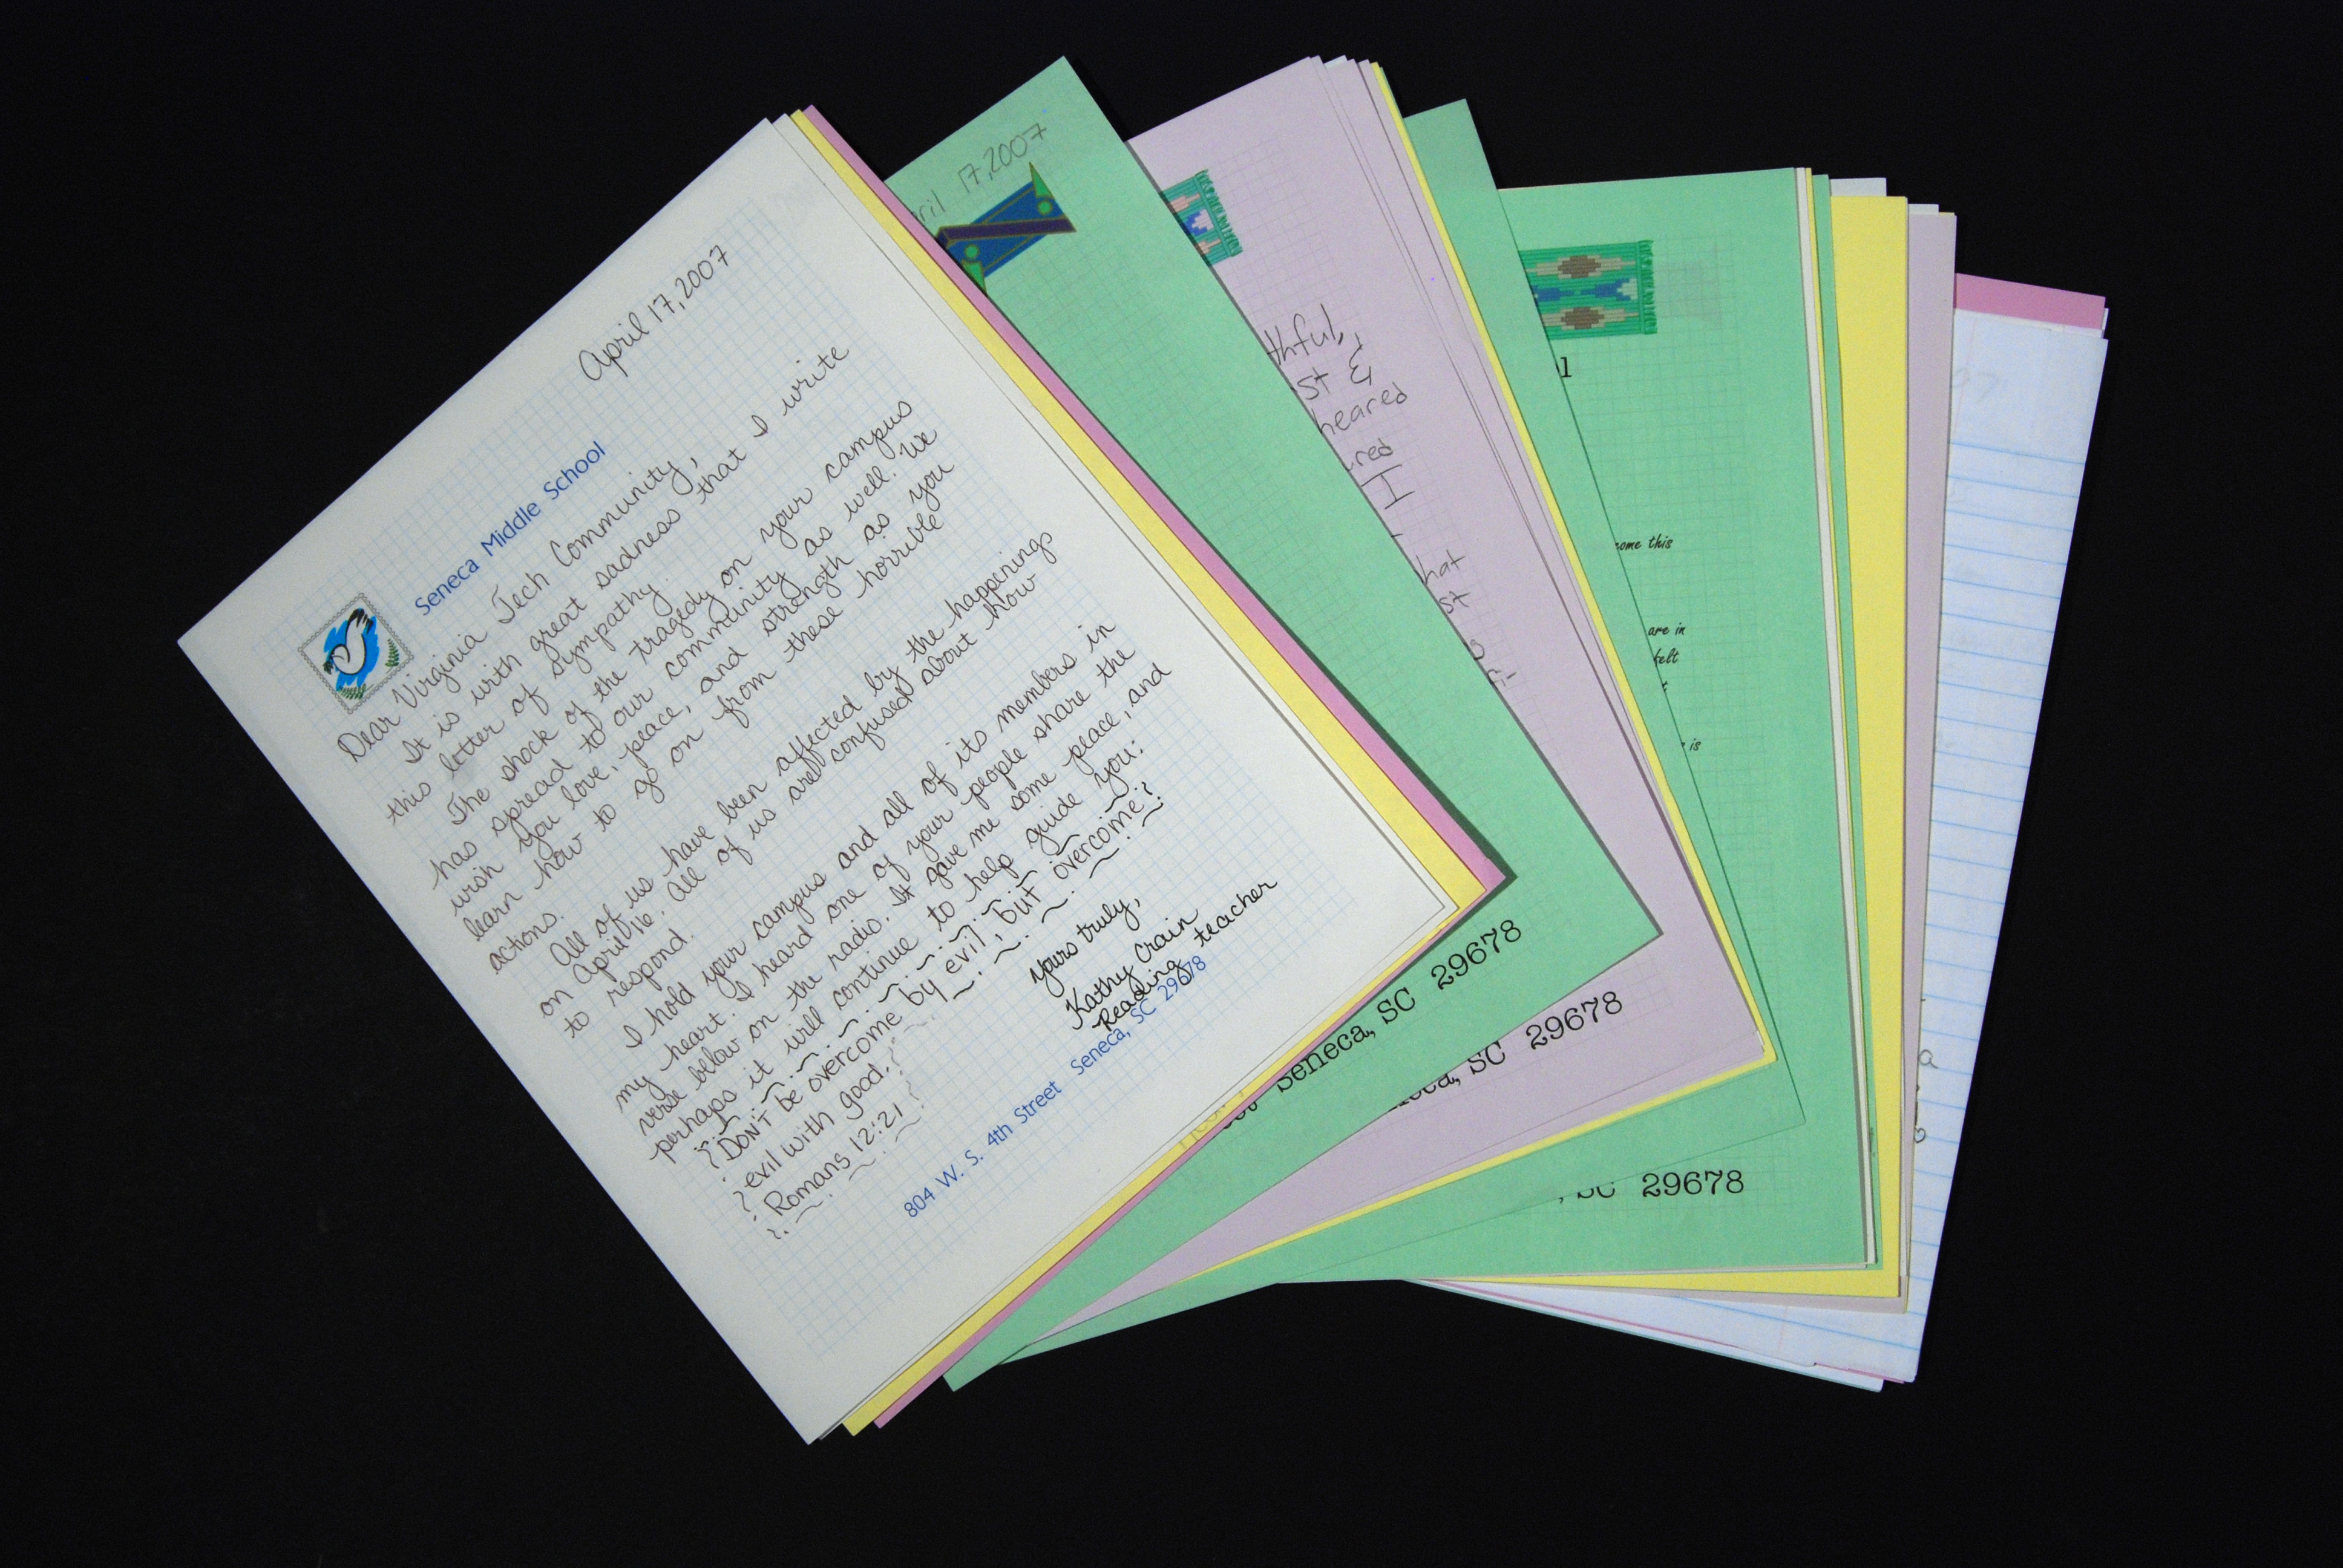 April 17, 2007
Seneca Middle School
Dear Virginia Tech Community,
It is with great sadness that I write
this letter of sympathy.
The shock of the tragedy on your campus
has spread to our community as well. We
wish you love, peace, and strength as you
learn how to go on from these horrible
actions.
All of us have been affected by the happenings
on April 16. All of us are confused about how
to respond.
I hold your campus and all of its members in
my heart. I heard one of your people share the
verse below on the radio. It gave me some peace, and
perhaps it will continue to help guide you:
Don't be overcome by evil, but overcome
evil with good.
Romans 12:21
Yours truly,
Kathy Crain
Reading teacher
804 W. S. 4th Street Seneca, SC 29678
ril 17, 2007
Seneca, SC 29678
thful,
st &
heared
ured
I
hat
st
eca, SC 29678
l
come this
are in
felt
is
, SC 29678
07